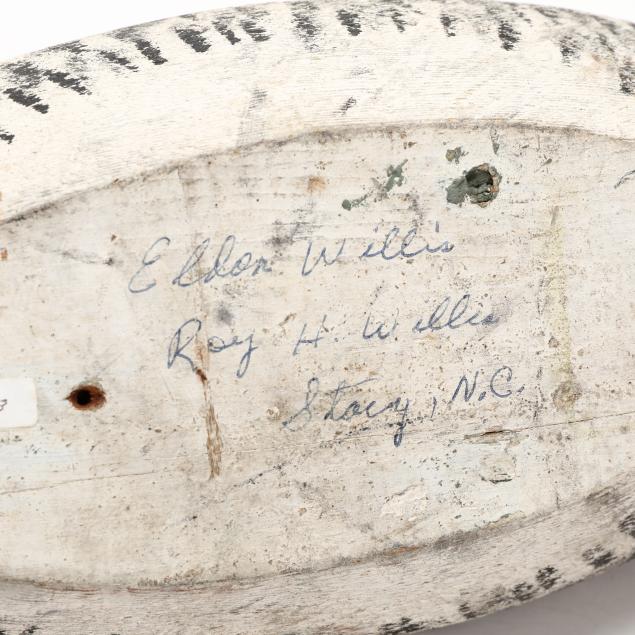 Eldon Willis
Roy H. Willis
Stacy, N.C.
3